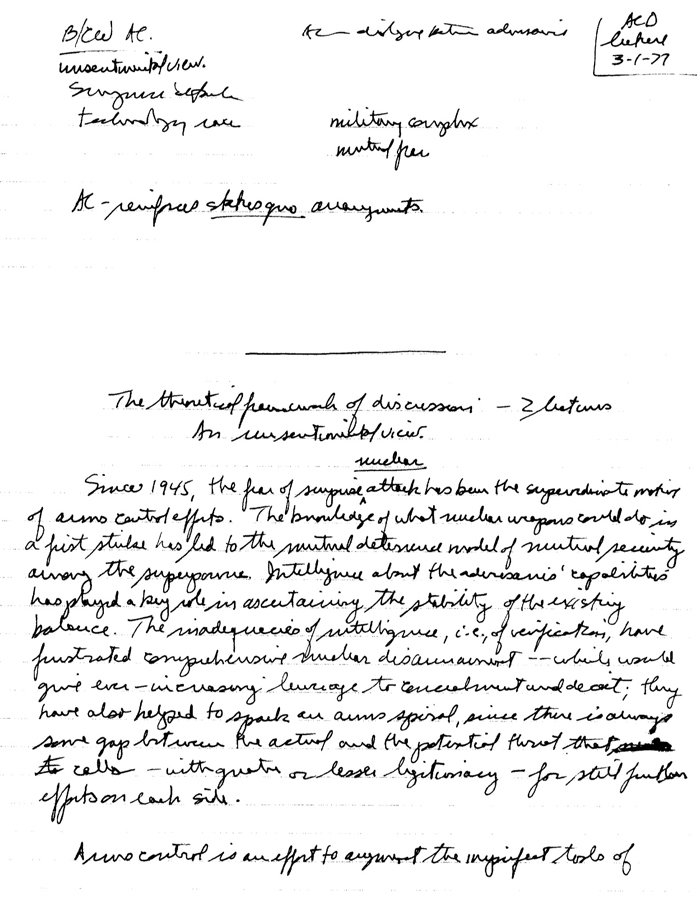 B/CW AC.
AC — dialogue between adversaries
ACD
lecture
3-1-77
unsentimental view.
Surprise
technology race
military complex
mutual fear
AC - reinforces status quo arrangements.
The theoretical framework of discussion — 2 lectures
An unsentimental view.
nuclear
Since 1945, the fear of surprise attack has been the superordinate motive
of arms control efforts. The knowledge of what nuclear weapons could do in
a first strike has led to the mutual deterrence model of mutual security
among the superpowers. Intelligence about the adversaries' capabilities
has played a key role in ascertaining the stability of the existing
balance. The inadequacies of intelligence, i.e., of verification, have
frustrated comprehensive nuclear disarmament -- which would
give ever-increasing leverage to concealment and deceit; they
have also helped to spark an arms spiral, since there is always
some gap between the actual and the potential threat that
to calls - with greater or lesser legitimacy - for still further
efforts on each side.
Arms control is an effort to augment the imperfect tools of